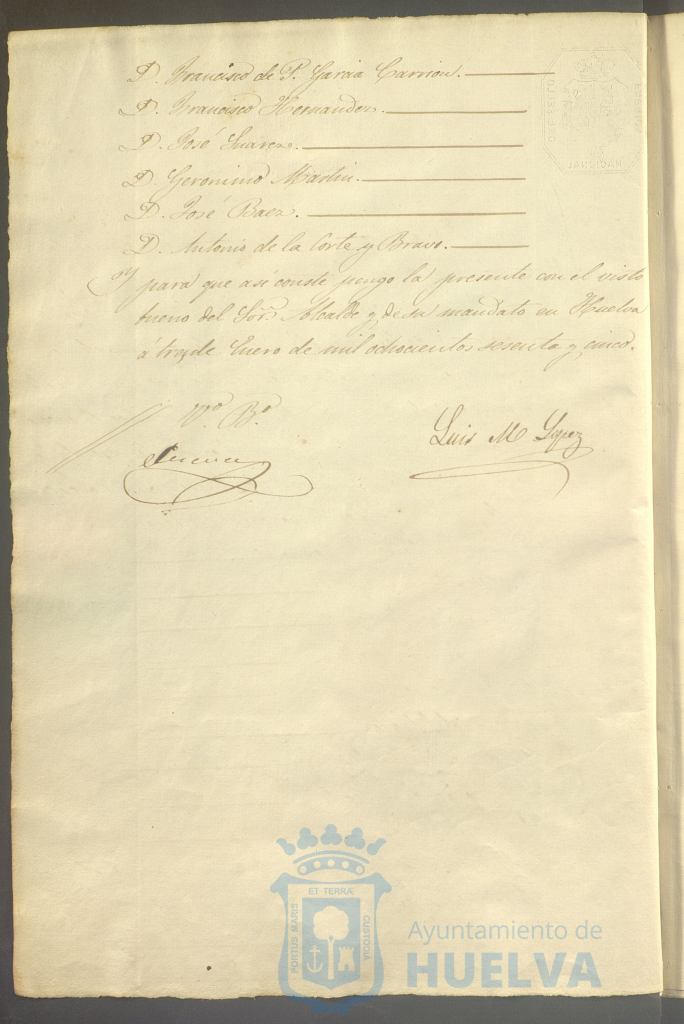 D. Francisco de P. Garcia Carrion.
D. Francisco Hernandez.
D. José Suarez.
D. Geronimo Martin.
D. José Baez.
D. Antonio de la Corte y Bravo.
Y para que asi conste pongo la presente con el visto
bueno del Sor. Alcalde y de su mandato en Huelva
á tres de Enero de mil ochocientos sesenta y cinco.
Vº Bº
Luis M Lopez
ET TERRÆ
PORTUS MARIS
CUSTODIA
Ayuntamiento de
HUELVA